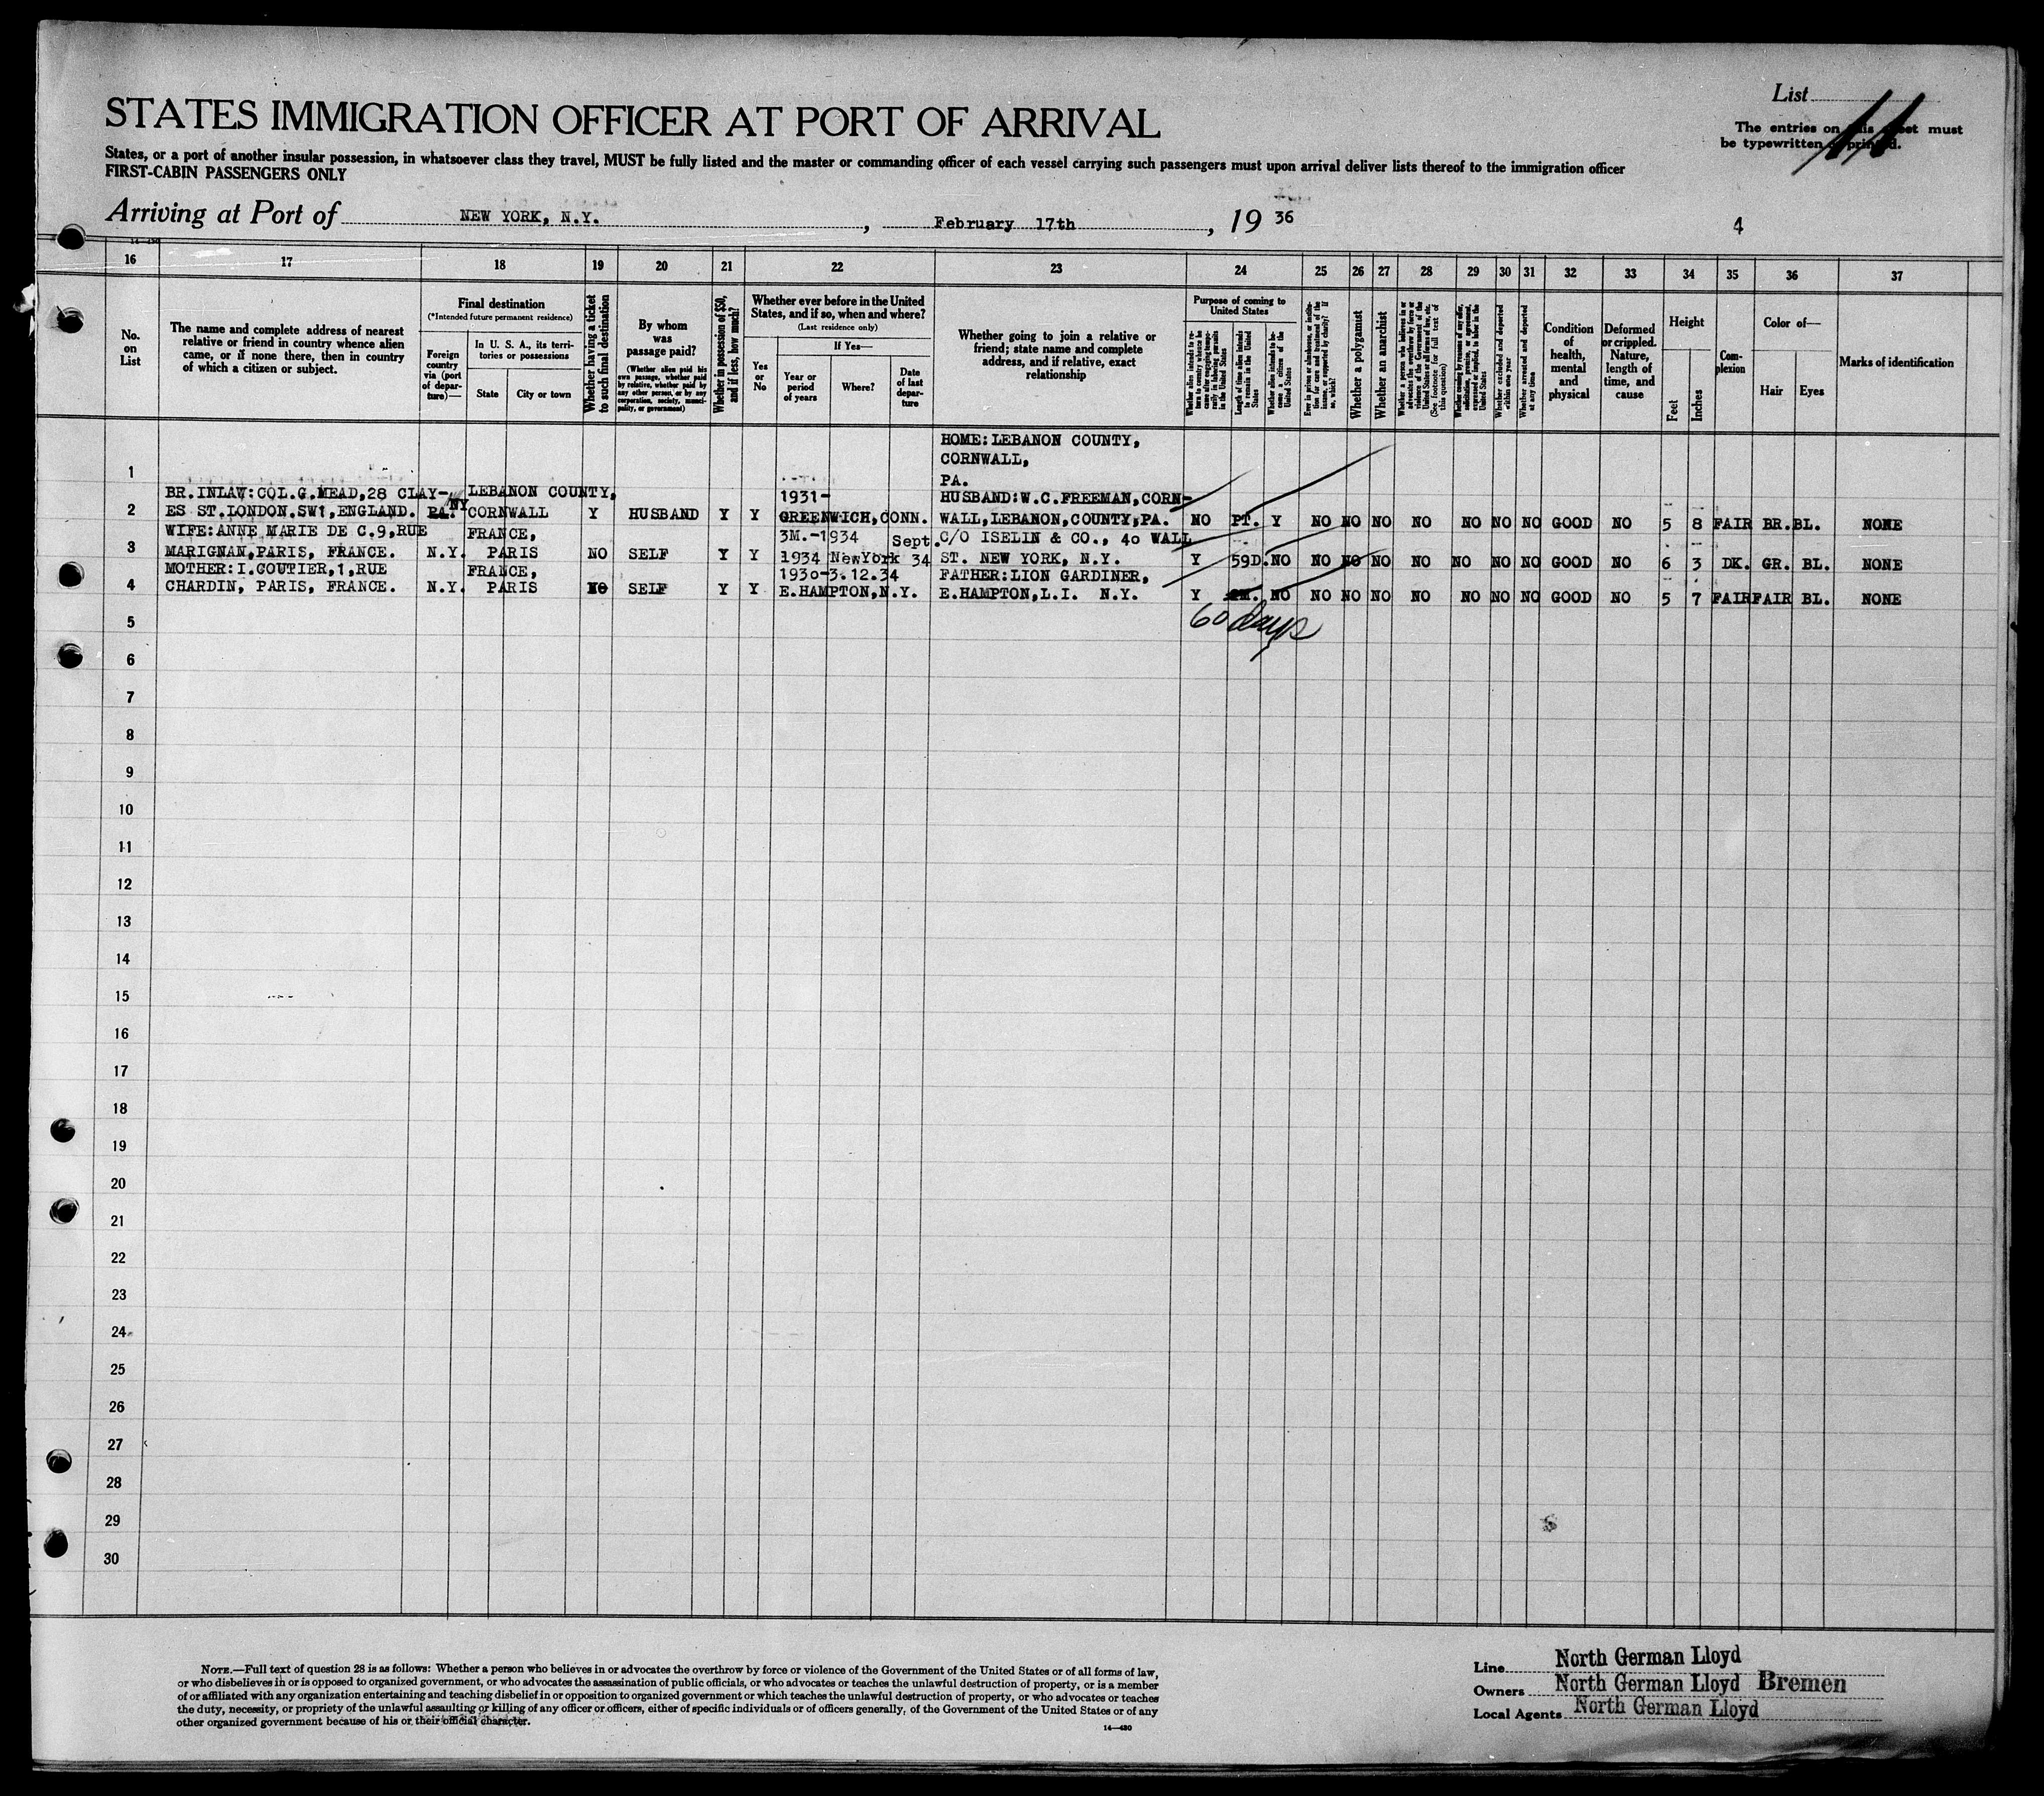 List
11
STATES IMMIGRATION OFFICER AT PORT OF ARRIVAL
The entries on this sheet must
be typewritten or printed.
States, or a port of another insular possession, in whatsoever class they travel, MUST be fully listed and the master or commanding officer of each vessel carrying such passengers must upon arrival deliver lists thereof to the immigration officer
FIRST-CABIN PASSENGERS ONLY
Arriving at Port of NEW YORK, N.Y. , February 17th , 19 36
4
14—430
16 17 18 19 20 21 22 23 24 25 26 27 28 29 30 31 32 33 34 35 36 37
No. on List
The name and complete address of nearest relative or friend in country whence alien came, or if none there, then in country of which a citizen or subject.
Final destination
(*Intended future permanent residence)
Foreign country via (port of departure)—
In U. S. A., its territories or possessions
State
City or town
Whether having a ticket to such final destination
By whom was passage paid?
(Whether alien paid his own passage, whether paid by relative, whether paid by any other person, or by any corporation, society, municipality, or government)
Whether in possession of $50, and if less, how much?
Whether ever before in the United States, and if so, when and where?
(Last residence only)
Yes or No
If Yes—
Year or period of years
Where?
Date of last departure
Whether going to join a relative or friend; state name and complete address, and if relative, exact relationship
Purpose of coming to United States
Whether alien intends to return to country whence he came after engaging temporarily in laboring pursuits in the United States
Length of time alien intends to remain in the United States
Whether alien intends to become a citizen of the United States
Ever in prison or almshouse, or institution for care and treatment of the insane, or supported by charity? If so, which?
Whether a polygamist
Whether an anarchist
Whether a person who believes in or advocates the overthrow by force or violence of the Government of the United States or all forms of law, etc. (See footnote for full text of this question)
Whether coming by reason of any offer, solicitation, promise, or agreement, expressed or implied, to labor in the United States
Whether excluded and deported within one year
Whether arrested and deported at any time
Condition of health, mental and physical
Deformed or crippled. Nature, length of time, and cause
Height
Feet
Inches
Complexion
Color of—
Hair
Eyes
Marks of identification
HOME: LEBANON COUNTY,
CORNWALL,
1 PA.
BR. INLAW: COL. G. MEAD, 28 CLAY- LEBANON COUNTY, 1931- HUSBAND: W.C. FREEMAN, CORN-
2 ES ST. LONDON. SW1, ENGLAND. PA. NY CORNWALL Y HUSBAND Y Y GREENWICH, CONN. WALL, LEBANON, COUNTY, PA. NO PT. Y NO NO NO NO NO NO NO GOOD NO 5 8 FAIR BR. BL. NONE
WIFE: ANNE MARIE DE C. 9, RUE FRANCE, 3M.-1934 Sept. C/O ISELIN & CO., 40 WALL
3 MARIGNAN, PARIS, FRANCE. N.Y. PARIS NO SELF Y Y 1934 New York 34 ST. NEW YORK, N.Y. Y 59D. NO NO NO NO NO NO NO NO GOOD NO 6 3 DK. GR. BL. NONE
MOTHER: I. GOUTIER, 1, RUE FRANCE, 1930-3.12.34 FATHER: LION GARDINER,
4 CHARDIN, PARIS, FRANCE. N.Y. PARIS NO SELF Y Y E. HAMPTON, N.Y. E. HAMPTON, L.I. N.Y. Y NO NO NO NO NO NO NO NO GOOD NO 5 7 FAIR FAIR BL. NONE
60 days
5
6
7
8
9
10
11
12
13
14
15
16
17
18
19
20
21
22
23
24
25
26
27
28
29
30
NOTE.—Full text of question 28 is as follows: Whether a person who believes in or advocates the overthrow by force or violence of the Government of the United States or of all forms of law,
or who disbelieves in or is opposed to organized government, or who advocates the assassination of public officials, or who advocates or teaches the unlawful destruction of property, or is a member
of or affiliated with any organization entertaining and teaching disbelief in or opposition to organized government or which teaches the unlawful destruction of property, or who advocates or teaches
the duty, necessity, or propriety of the unlawful assaulting or killing of any officer or officers, either of specific individuals or of officers generally, of the Government of the United States or of any
other organized government because of his or their official character.
14—430
Line North German Lloyd
Owners North German Lloyd Bremen
Local Agents North German Lloyd